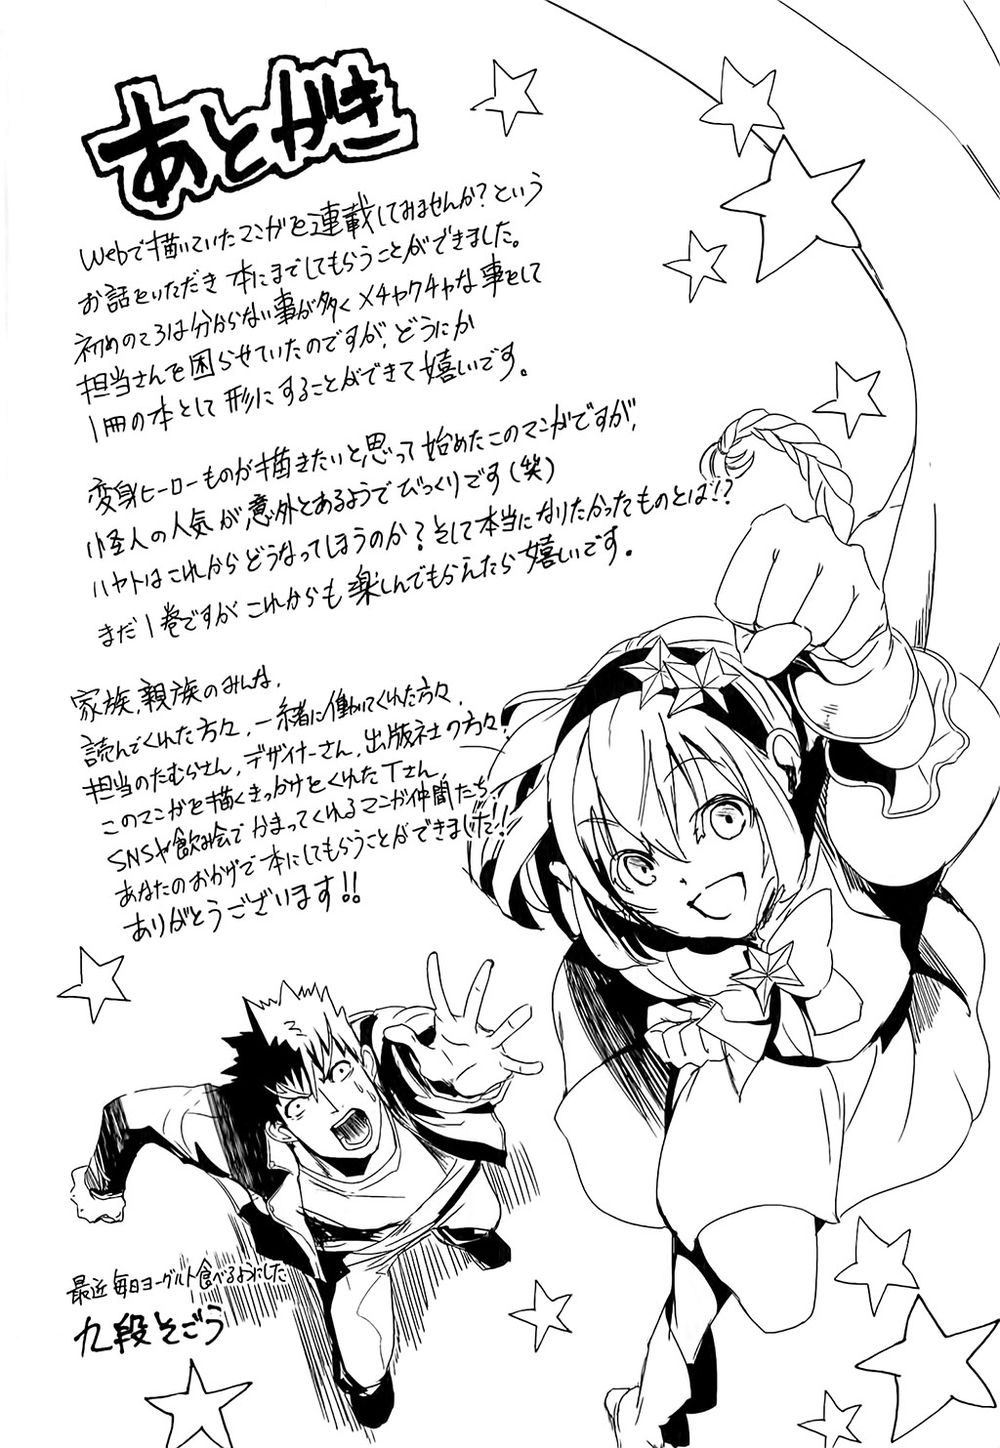 あとがき
Webで描いていたマンガを連載してみませんか？という
お話をいただき 本にまでしてもらうことができました。
初めのころは分からない事が多くメチャクチャな事をして
担当さんを困らせていたのですが、どうにか
1冊の本として形にすることができて嬉しいです。
変身ヒーローものが描きたいと思って始めたこのマンガですが、
怪人の人気が意外とあるようでびっくりです(笑)
ハヤトはこれからどうなってしまうのか？そして本当になりたかったものとは!?
まだ1巻ですがこれからも楽しんでもらえたら嬉しいです。
家族、親族のみんな、
読んでくれた方々、一緒に働いてくれた方々、
担当のたむらさん、デザイナーさん、出版社の方々、
このマンガを描くきっかけをくれたTさん、
SNSや飲み会でかまってくれるマンガ仲間たち、
あなたのおかげで本にしてもらうことができました!!
ありがとうございます!!
最近毎日ヨーグルト食べるようにした
九段そごう